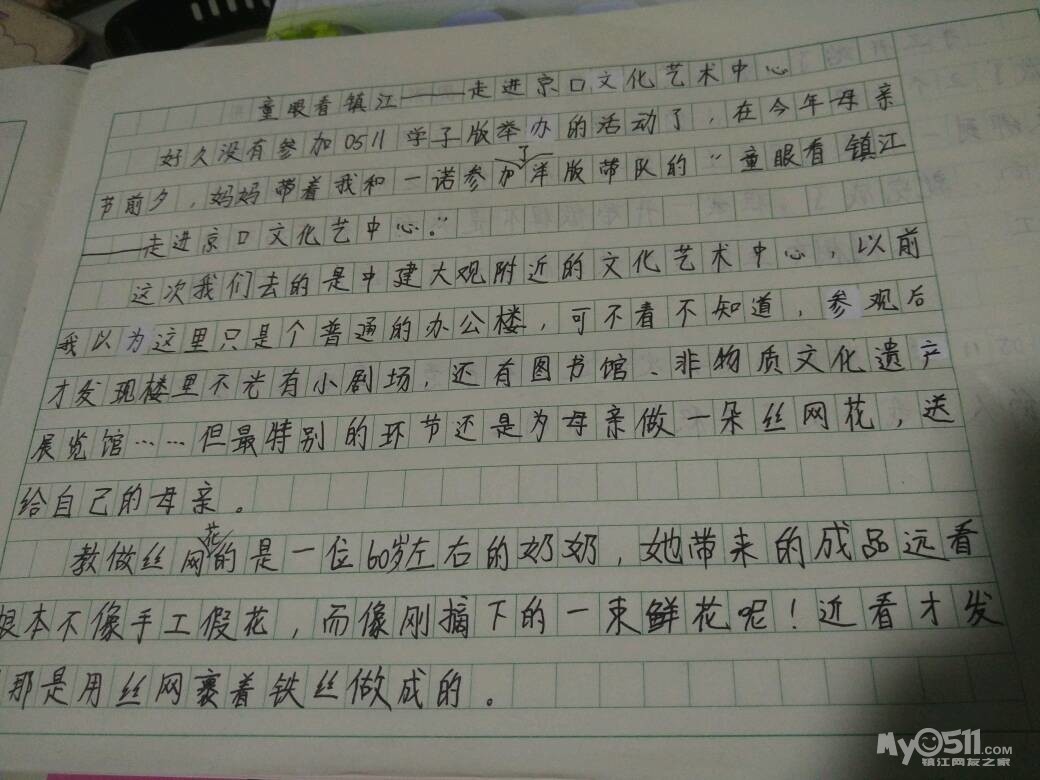 童眼看镇江——走进京口文化艺术中心
好久没有参加0511学子版举办的活动了，在今年母亲
节前夕，妈妈带着我和一诺参加了洋版带队的“童眼看镇江
——走进京口文化艺中心。”
这次我们去的是中建大观附近的文化艺术中心，以前
我以为这里只是个普通的办公楼，可不看不知道，参观后
才发现楼里不光有小剧场，还有图书馆、非物质文化遗产
展览馆……但最特别的环节还是为母亲做一朵丝网花，送
给自己的母亲。
教做丝网花的是一位60岁左右的奶奶，她带来的成品远看
根本不像手工假花，而像刚摘下的一束鲜花呢！近看才发
那是用丝网裹着铁丝做成的。
My0511.COM
镇江网友之家